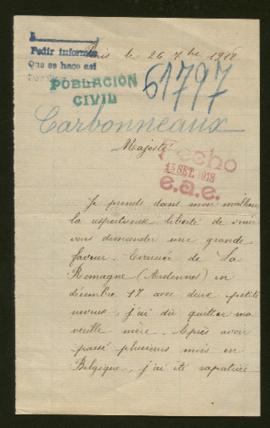 Paris le 26 7bre 1918
A
Pedir informes
Que se hace así
POBLACIÓN
CIVIL
61797
Carbonneaux
Majesté
Hecho
SET. 1918
e.a.e.
Je prends dans mon malheur
la respectueuse liberté de venir
vous demander une grande
faveur. Évacuée de La
Romagne (Ardennes) en
décembre 17 avec deux petits
neveux, j'ai dû quitter ma
vieille mère. Après avoir
passé plusieurs mois en
Belgique, j'ai été rapatriée